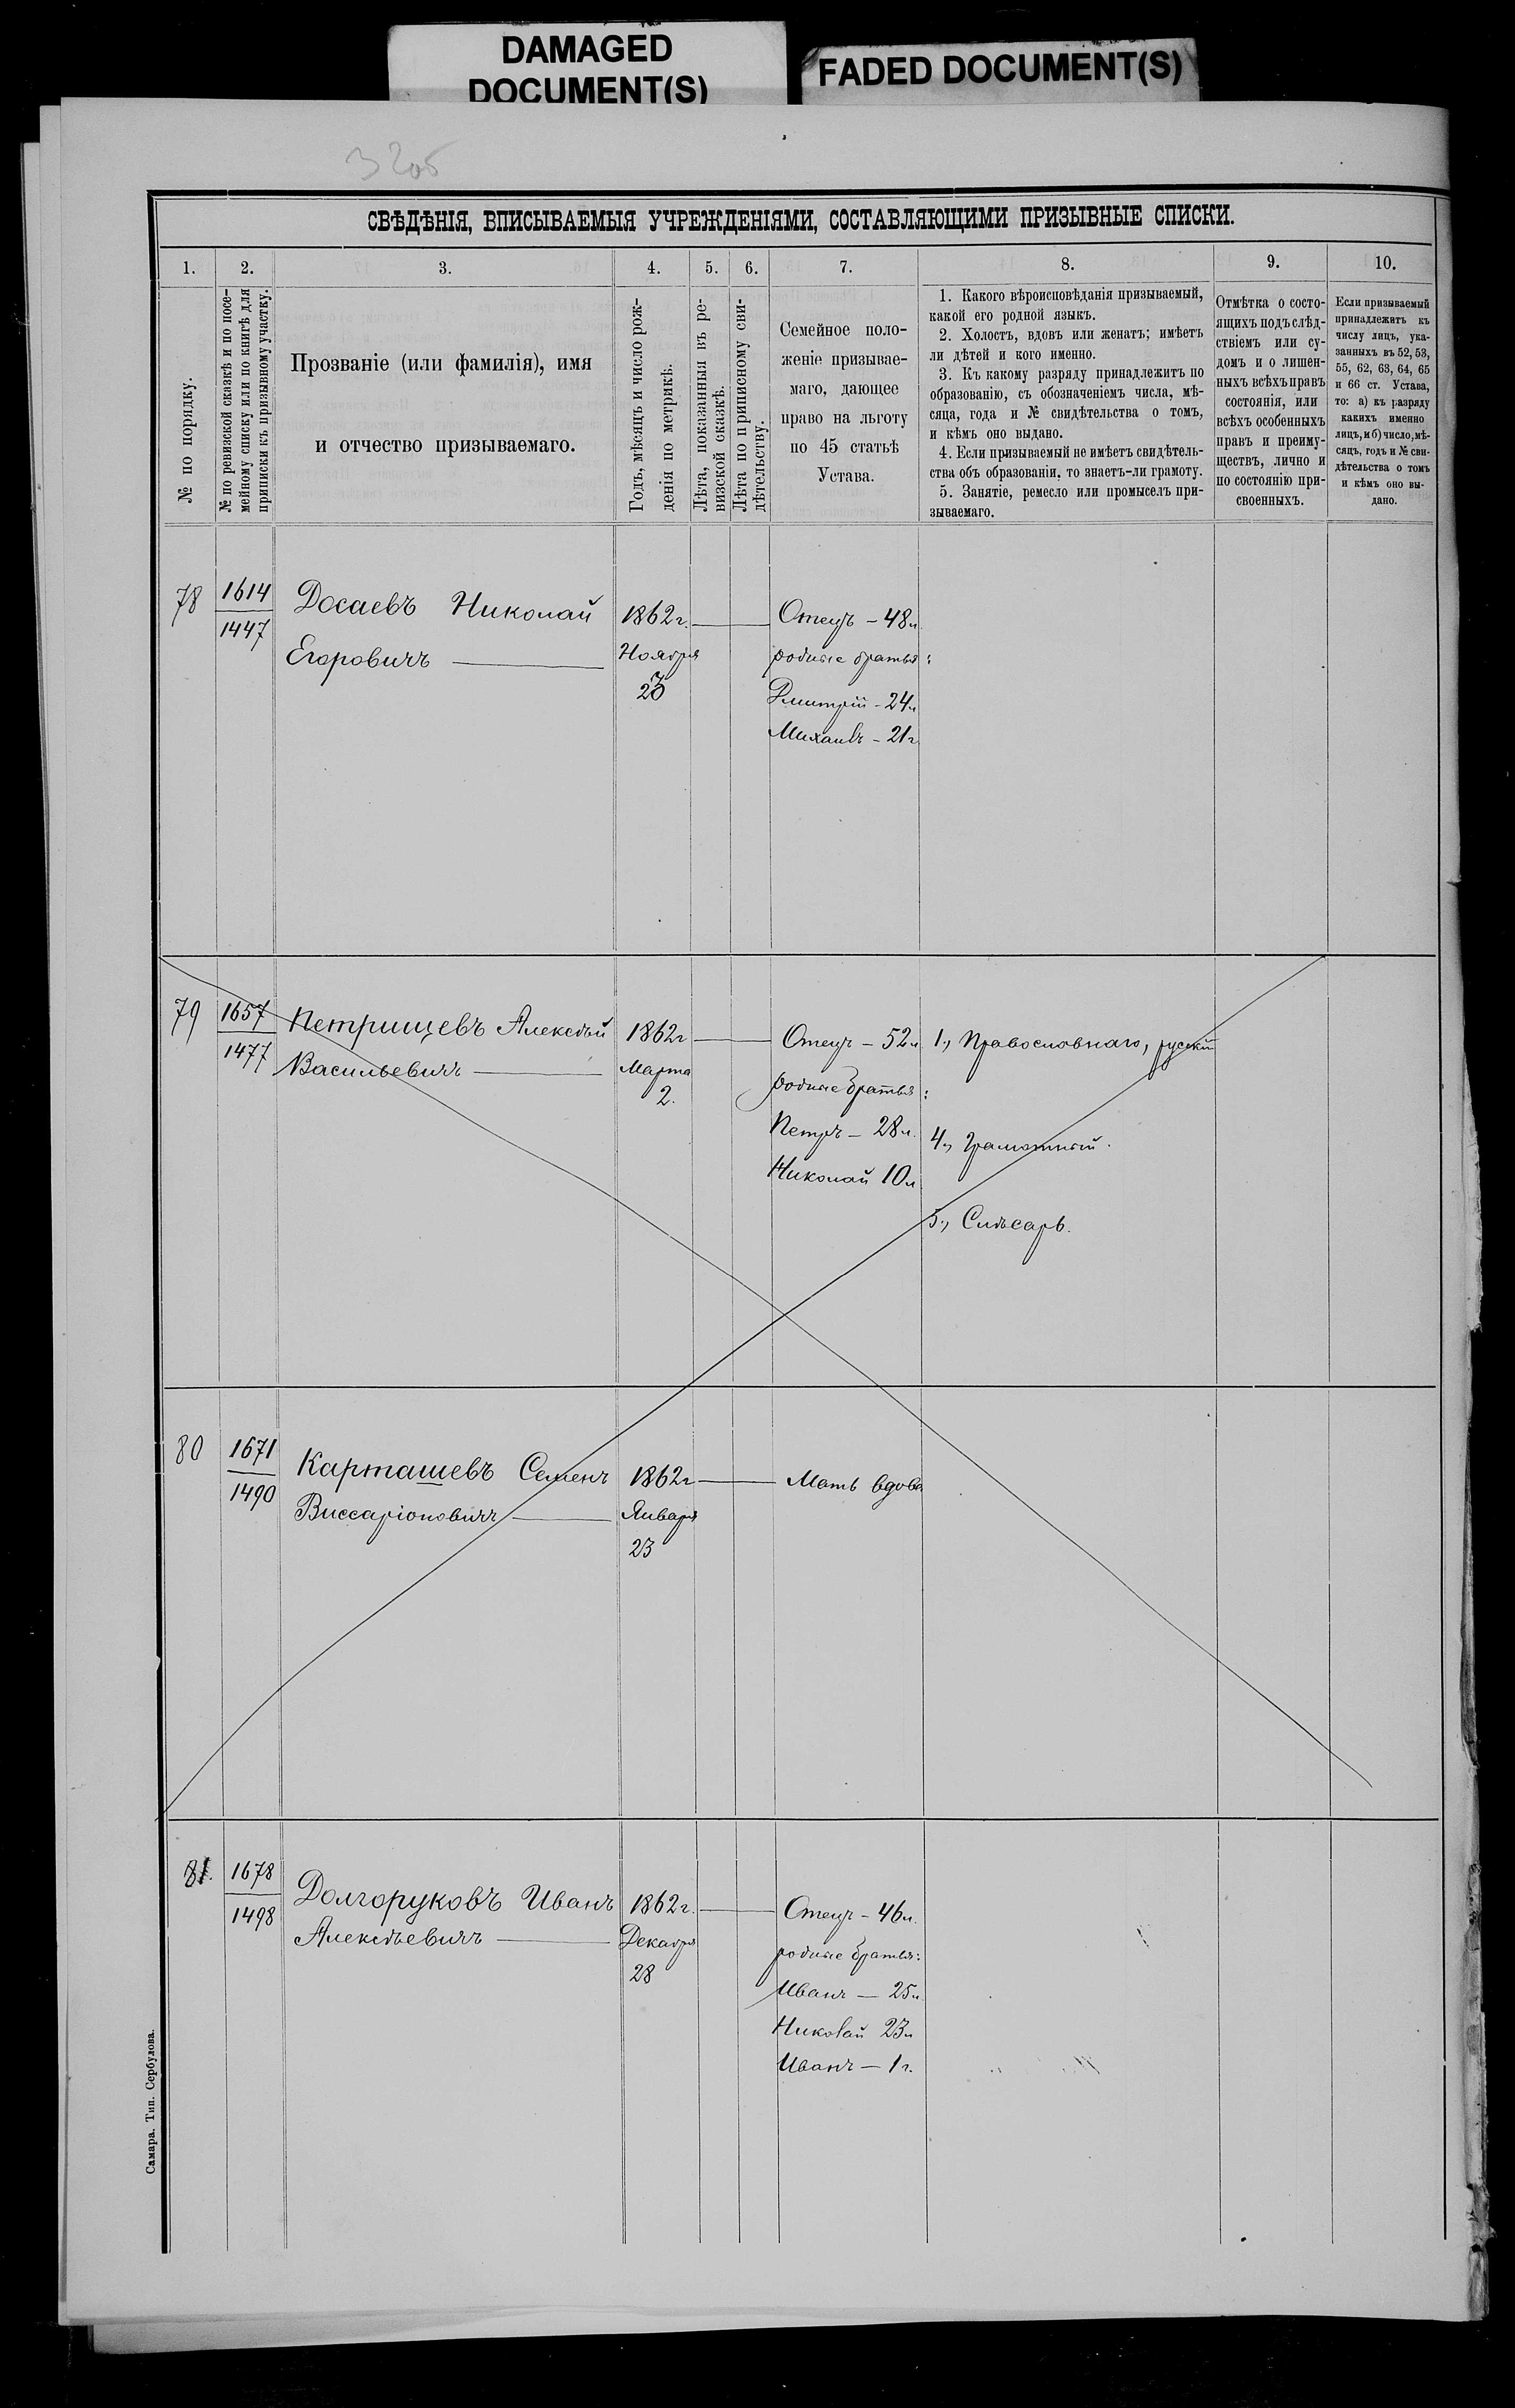 DAMAGED
DOCUMENT(S)
FADED DOCUMENT(S)
32об
СВѢДѢНІЯ, ВПИСЫВАЕМЫЯ УЧРЕЖДЕНІЯМИ, СОСТАВЛЯЮЩИМИ ПРИЗЫВНЫЕ СПИСКИ.
1.
2.
3.
4.
5.
6.
7.
8.
9.
10.
№ по порядку.
№ по ревизской сказкѣ и по посе-
мейному списку или по книгѣ для
приписки къ призывному участку.
Прозваніе (или фамилія), имя
и отчество призываемаго.
Годъ, мѣсяцъ и число рож-
денія по метрикѣ.
Лѣта, показанныя въ ре-
визской сказкѣ.
Лѣта по приписному сви-
дѣтельству.
Семейное поло-
женіе призывае-
маго, дающее
право на льготу
по 45 статьѣ
Устава.
1. Какого вѣроисповѣданія призываемый,
какой его родной языкъ.
2. Холостъ, вдовъ или женатъ; имѣетъ
ли дѣтей и кого именно.
3. Къ какому разряду принадлежитъ по
образованію, съ обозначеніемъ числа, мѣ-
сяца, года и № свидѣтельства о томъ,
и кѣмъ оно выдано.
4. Если призываемый не имѣетъ свидѣтель-
ства объ образованіи, то знаетъ-ли грамоту.
5. Занятіе, ремесло или промыселъ при-
зываемаго.
Отмѣтка о состо-
ящихъ подъ слѣд-
ствіемъ или су-
домъ и о лишен-
ныхъ всѣхъ правъ
состоянія, или
всѣхъ особенныхъ
правъ и преиму-
ществъ, лично и
по состоянію при-
своенныхъ.
Если призываемый
принадлежитъ къ
числу лицъ, ука-
занныхъ въ 52, 53,
55, 62, 63, 64, 65
и 66 ст. Устава,
то: а) къ разряду
какихъ именно
лицъ, и б) число, мѣ-
сяцъ, годъ и № сви-
дѣтельства о томъ
и кѣмъ оно вы-
дано.
78
1614
1447
Досаевъ Николай
Егоровичъ
1862г.
Ноября
Отецъ – 48л
родные братья:
Дмитрій – 24л
Михаилъ – 21г
79
1657
1477
Петрищевъ Алексѣй
Васильевичъ
1862г
Марта
2.
Отецъ – 52л
родные братья:
Петръ – 28л.
Николай 10л
1., Православнаго, русскій
4., Грамотный.
5., Слѣсарь.
80
1671
1490
Карташевъ Семенъ
Виссаріоновичъ
1862г
Января
23
Мать вдова
81.
1678
1498
Долгоруковъ Иванъ
Алексѣевичъ
1862г.
Декабря
28
Отецъ – 46л.
родные братья:
Иванъ – 25л
Николай 23л
Иванъ – 1г.
Самара. Тип. Сербулова.